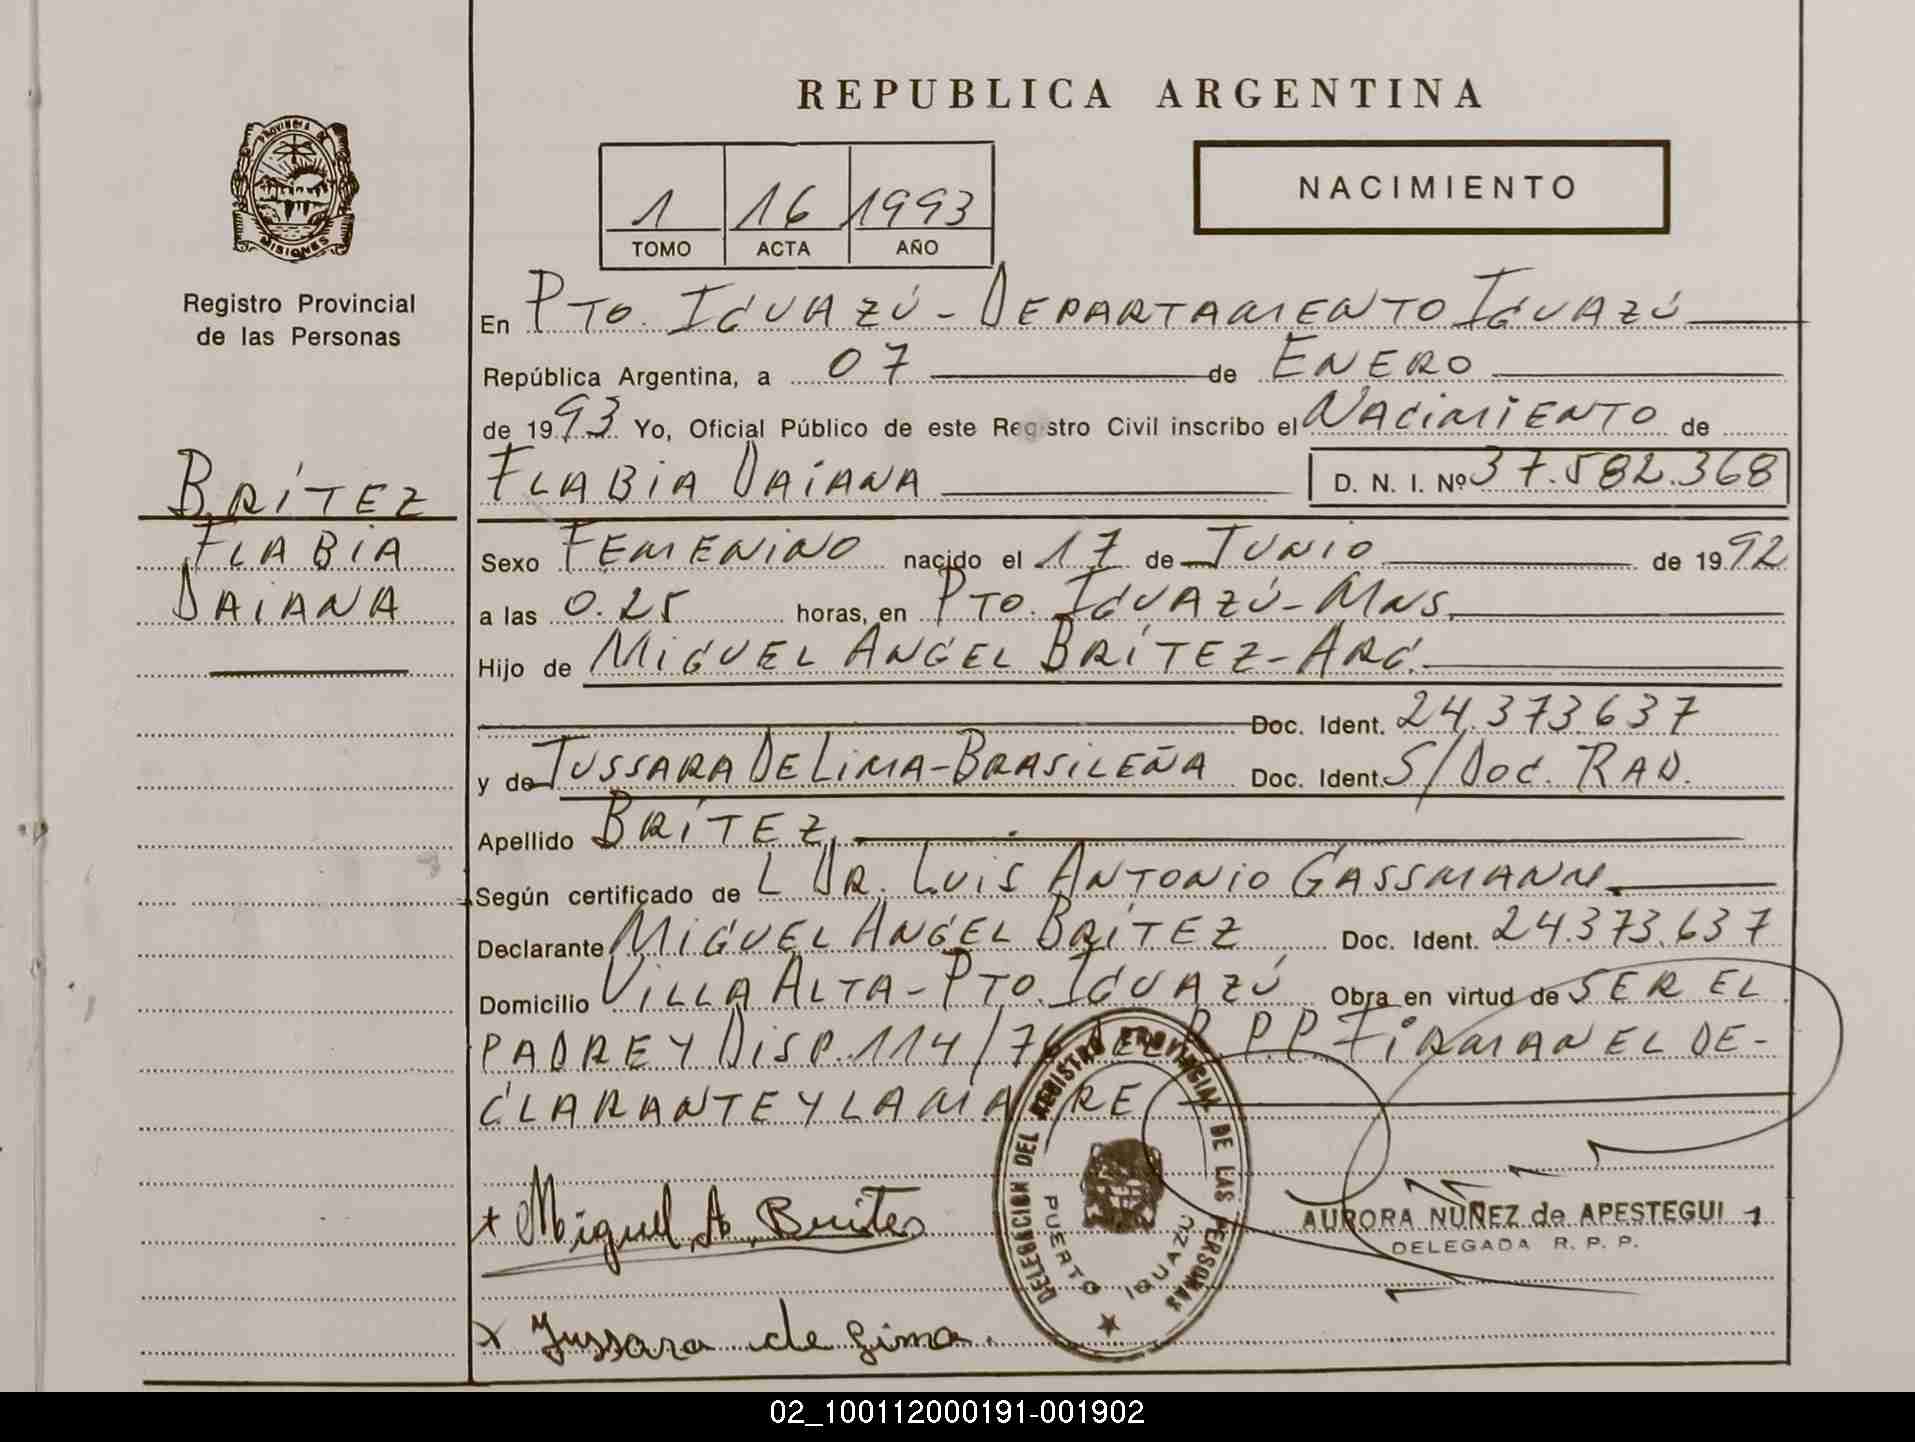 REPUBLICA ARGENTINA
PROVINCIA DE
MISIONES
Registro Provincial
de las Personas
1 16 1993
TOMO ACTA AÑO
NACIMIENTO
En PTO. IGUAZÚ - DEPARTAMENTO IGUAZÚ
República Argentina, a 07 de ENERO
de 1993 Yo, Oficial Público de este Registro Civil inscribo el NACIMIENTO de
FLABIA DAIANA D. N. I. Nº 37.582.368
BRÍTEZ
FLABIA
DAIANA
Sexo FEMENINO nacido el 17 de JUNIO de 1992
a las 0.25 horas, en PTO. IGUAZÚ - MNS.
Hijo de MIGUEL ANGEL BRÍTEZ - ARG.
Doc. Ident. 24.373.637
y de JUSSARA DE LIMA - BRASILEÑA Doc. Ident. S/DOC. RAD.
Apellido BRÍTEZ
Según certificado de L DR. LUIS ANTONIO GASSMANN
Declarante MIGUEL ANGEL BRÍTEZ Doc. Ident. 24.373.637
Domicilio VILLA ALTA - PTO. IGUAZÚ Obra en virtud de SER EL
PADRE Y DISP. 114/76 DEL R.P.P. FIRMAN EL DE-
CLARANTE Y LA MADRE
DELEGACION DEL REGISTRO PROVINCIAL DE LAS PERSONAS
PUERTO IGUAZU
x Miguel A. Brites
AURORA NUÑEZ de APESTEGUI
DELEGADA R. P. P.
x Jussara de Lima.
02_100112000191-001902